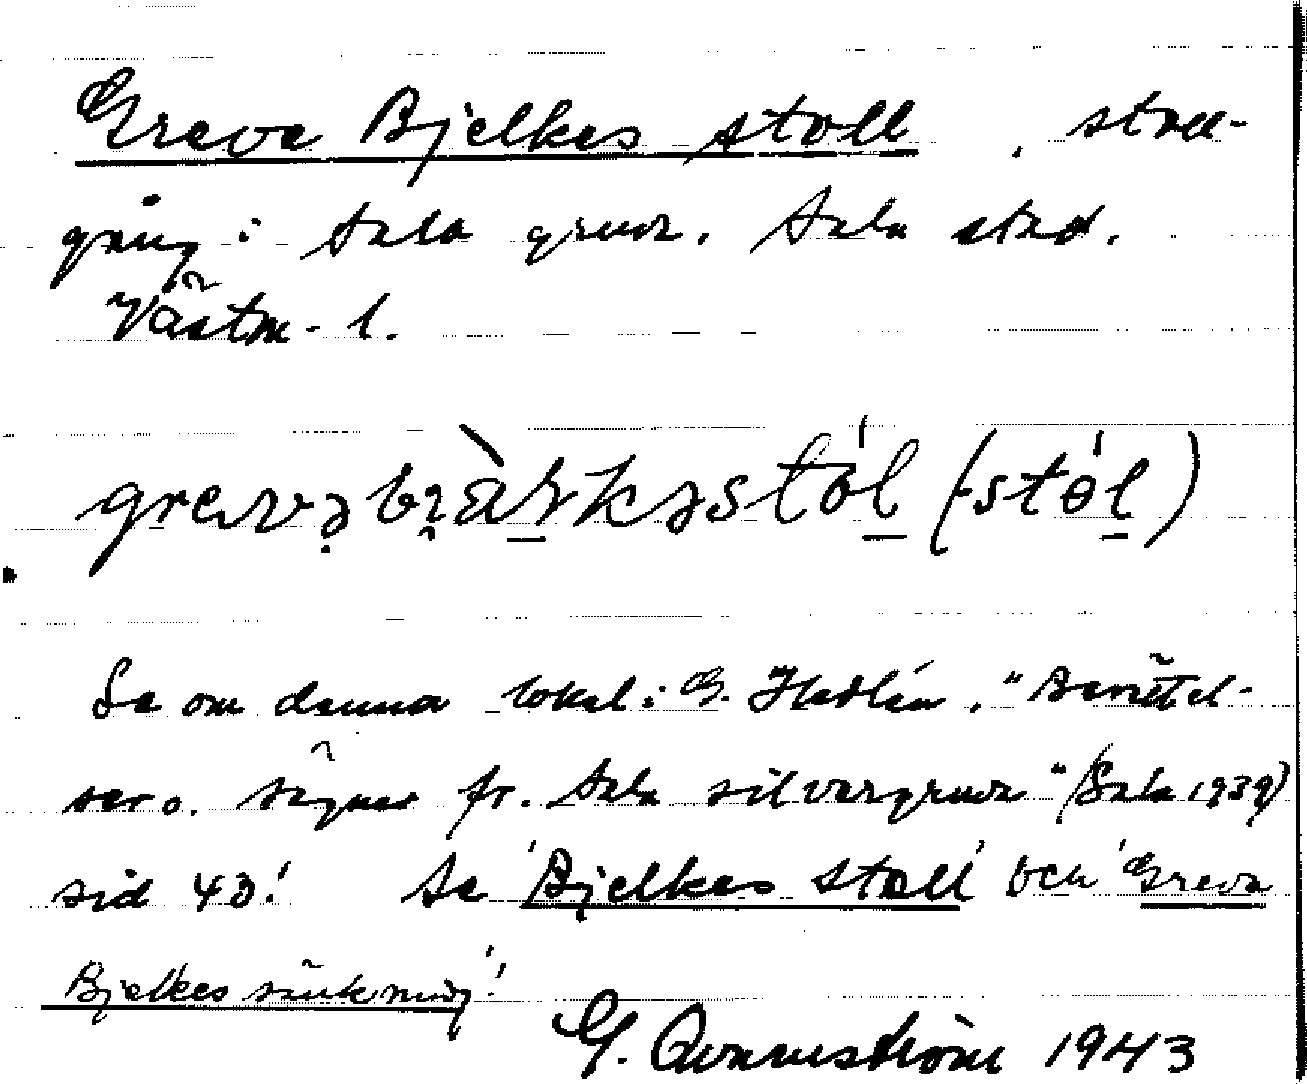 Greve Bjelkes stoll, stoll-
gång i Sala gruva. Sala stad.
Västm. l.
Se om denna lokal i G. "Berättel-
ser o. sägner fr. Sala silvergruva" (Sala 1939)
sid 43! Se 'Bjelkes stoll' och 'Greve
Bjelkes sänkning'!
G. Qvarnström 1943